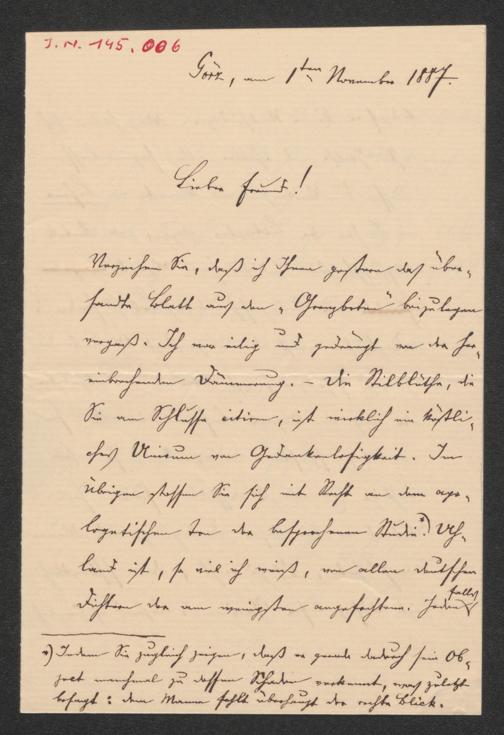 J.N. 145.006
Görz, am 1ten November 1887.
Lieber Freund!
Verzeihen Sie, daß ich Ihnen gestern das über-
sandte Blatt aus den „Grenzboten" beizulegen
vergaß. Ich war eilig und gedrängt von der her-
einbrechenden Dämmerung. – Die Stilblüthe, die
Sie am Schlusse citiren, ist wirklich ein köstli-
ches Unicum von Gedankenlosigkeit. Im
Übrigen stoßen Sie sich mit Recht an dem apo-
logetischen Ton der besprochenen Studie*). Uh-
land ist, so viel ich weiß, von allen deutschen
Dichtern der am wenigsten angefochtene. Jedenfalls
*) Indem Sie zugleich zeigen, daß er gerade dadurch sein Ob-
ject manchmal zu dessen Schaden verkennt, was zuletzt
besagt: dem Manne fehlt überhaupt der rechte Blick.